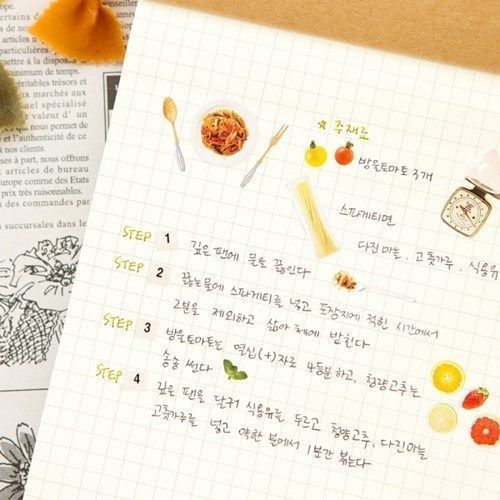 certains d
articles i
particulières p
mettre à la dispositi
minimum de temps.
véritables trésors et
marchés aux
nel spécialisé
valeur d' un
ce qui nous permet de
et l'authenticité de ce
à part, nous offrons
articles de bureau
Europe comme des Etats
prix très raisonnables.
des commandes par
succursales dans les
★ 주재료
방울토마토 3개
스파게티면
다진마늘, 고춧가루, 식용유
STEP 1 깊은 팬에 물을 끓인다
STEP 2 끓는물에 스파게티를 넣고 포장지에 적힌 시간에서
2분을 제외하고 삶아 체에 받친다
STEP 3 방울토마토는 열십(+)자로 4등분하고, 청양고추는
송송 썬다
STEP 4 깊은 팬을 달궈 식용유를 두르고 청양고추, 다진마늘
고춧가루를 넣고 약한 불에서 1분간 볶는다